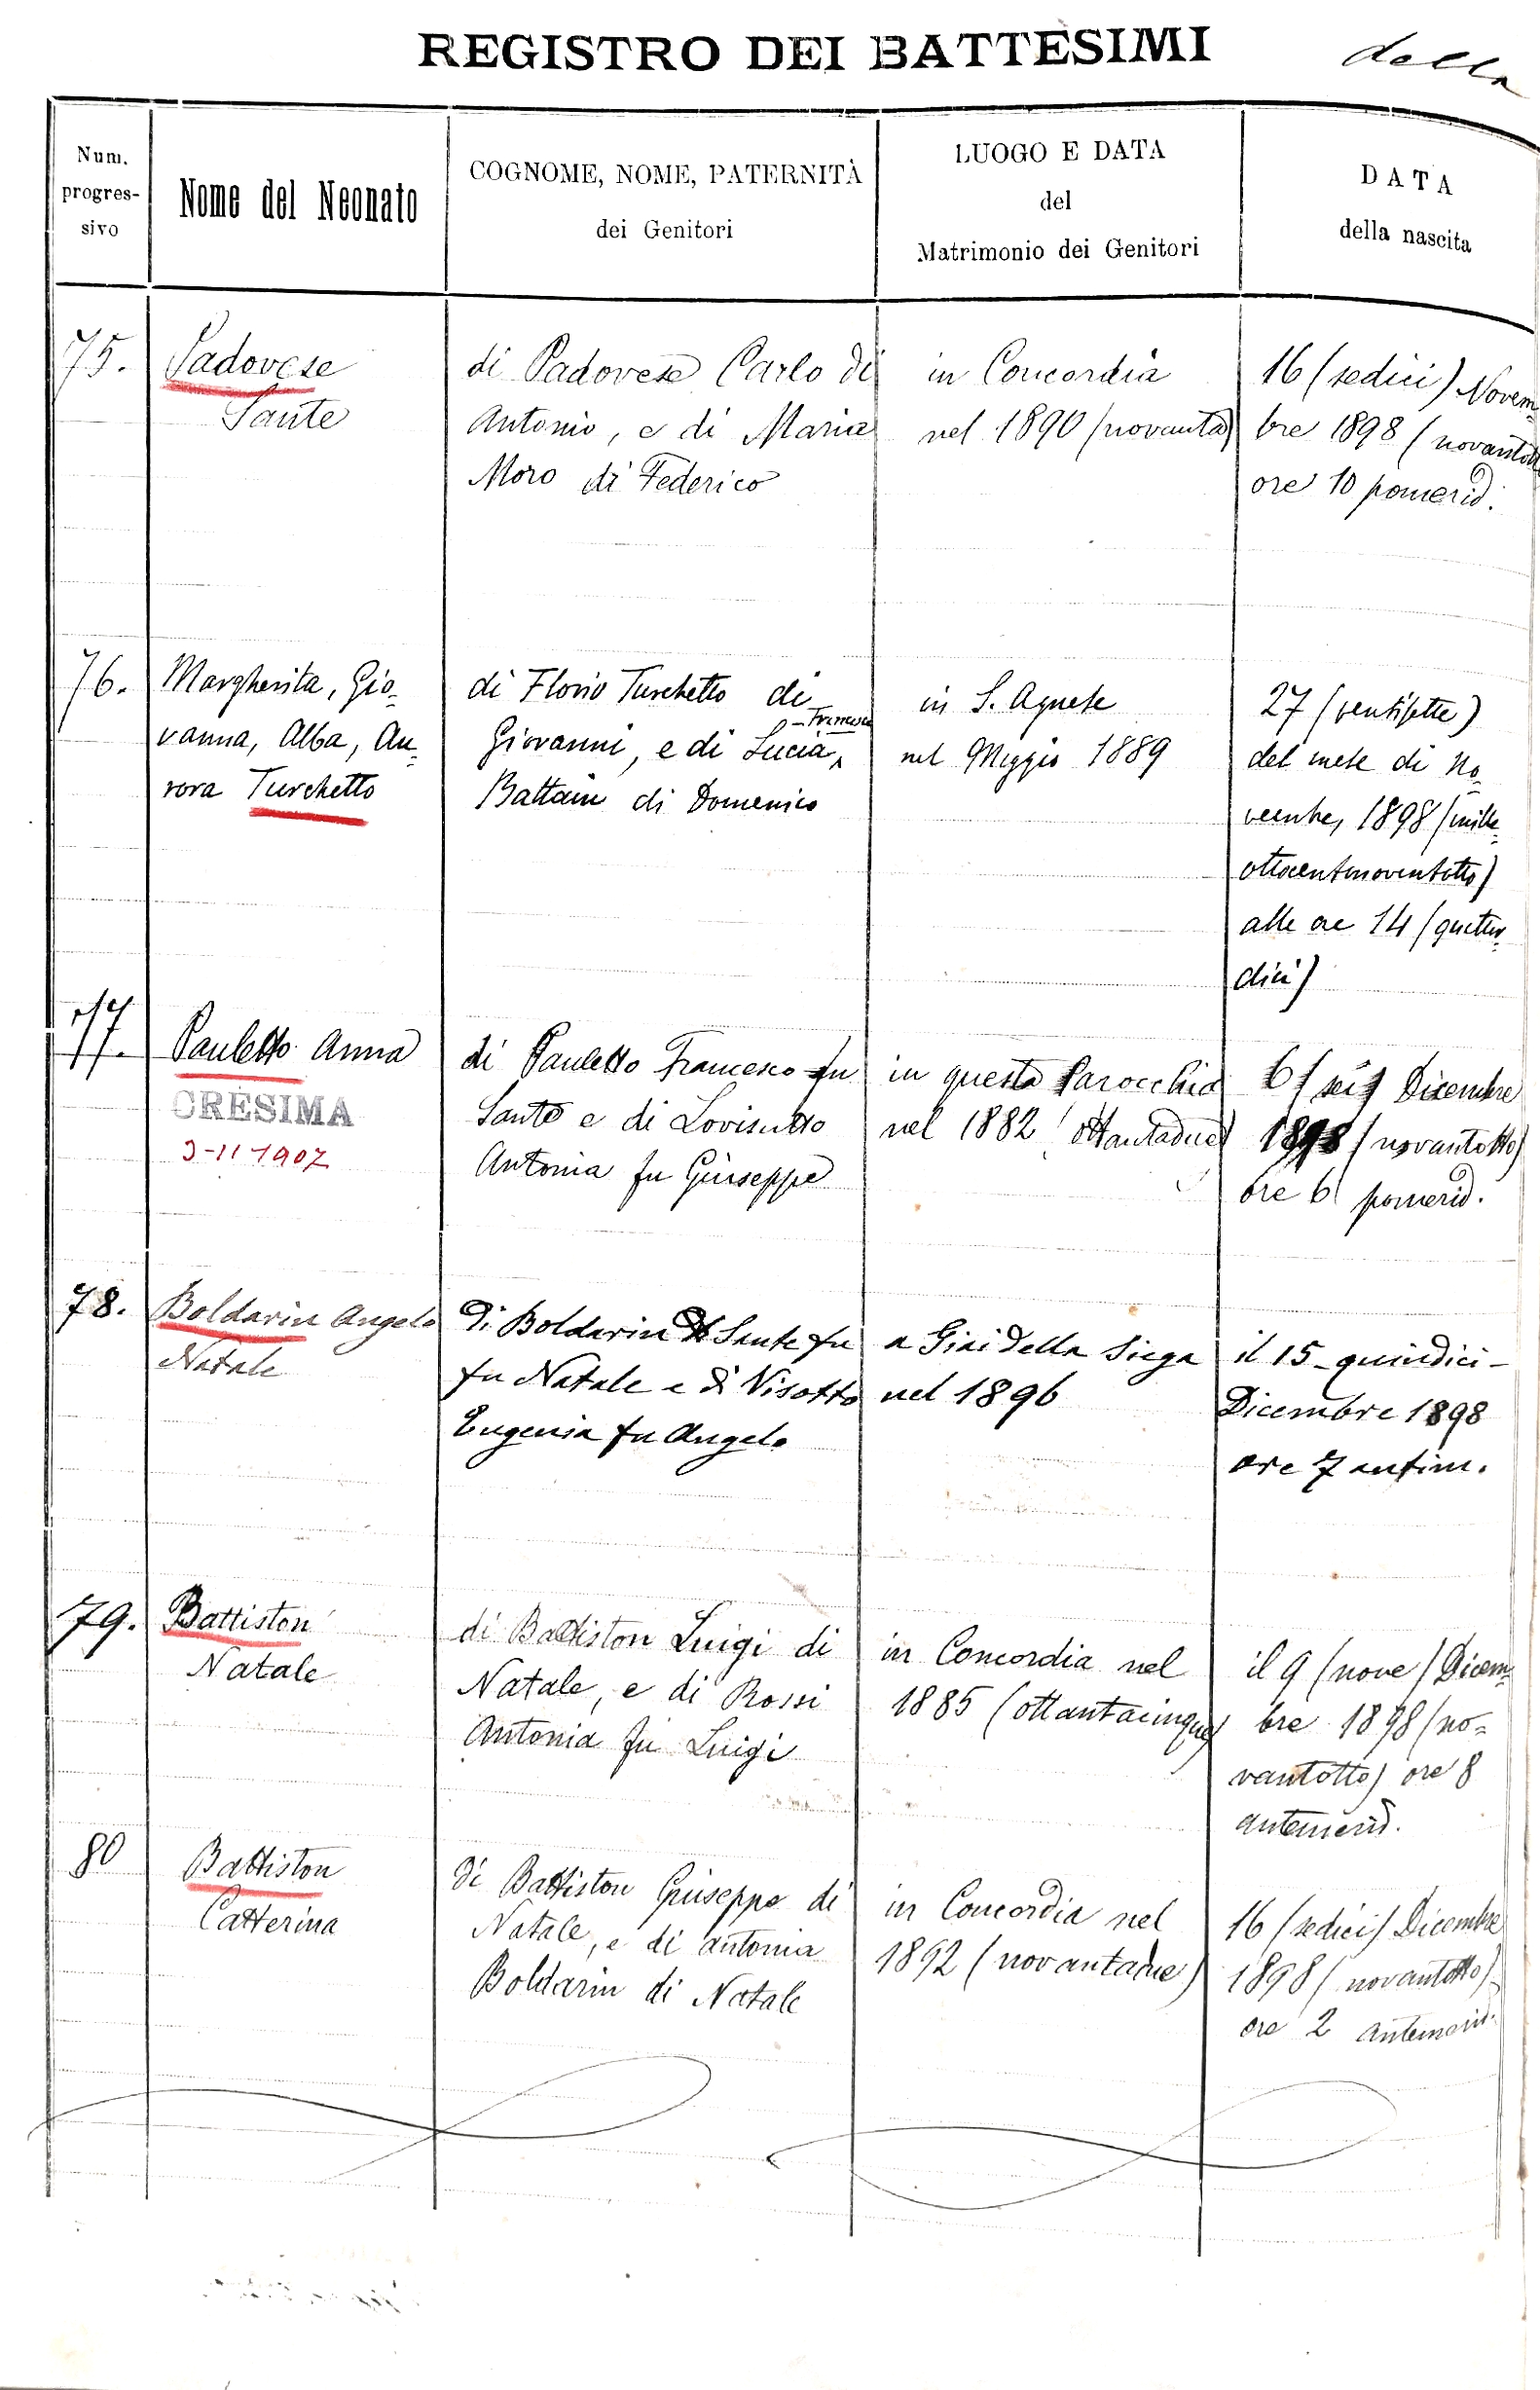 REGISTRO DEI BATTESIMI
della
Num.
progres-
sivo
Nome del Neonato
COGNOME, NOME, PATERNITÀ
dei Genitori
LUOGO E DATA
del
Matrimonio dei Genitori
DATA
della nascita
75.
Padovese
Sante
di Padovese Carlo di
Antonio, e di Maria
Moro di Federico
in Concordia
nel 1890 (novanta)
16 (sedici) Novem-
bre 1898 (novantotto
ore 10 pomerid.
76.
Margherita, Gio-
vanna, Alba, Au-
rora Turchetto
di Florio Turchetto di
Giovanni, e di Lucia
Battain di Domenico
in S. Agnese
nel Maggio 1889
27 (ventisette)
del mese di No-
vembre, 1898 (mille-
ottocentonovantotto)
alle ore 14 (quattor-
dici)
77.
Pauletto Anna
CRESIMA
3-11 1907
di Pauletto Francesco fu
Sante e di Lovisutto
Antonia fu Giuseppe
in questa Parocchia
nel 1882 (ottantadue)
6 (sei) Dicembre
1898 (novantotto)
ore 6 pomerid.
78.
Boldarin Angelo
Natale
Di Boldarin Sante fu
fu Natale e di Visotto
Eugenia fu Angelo
a Giai della Siega
nel 1896
il 15 - quindici -
Dicembre 1898
ore 7 antim.
79.
Battiston
Natale
di Battiston Luigi di
Natale, e di Rossi
Antonia fu Luigi
in Concordia nel
1885 (ottantacinque)
il 9 (nove) Dicem-
bre 1898 (no-
vantotto) ore 8
antemerid.
80
Battiston
Catterina
di Battiston Giuseppe di
Natale, e di Antonia
Boldarin di Natale
in Concordia nel
1892 (novantadue)
16 (sedici) Dicembre
1898 (novantotto)
ore 2 antemerid.